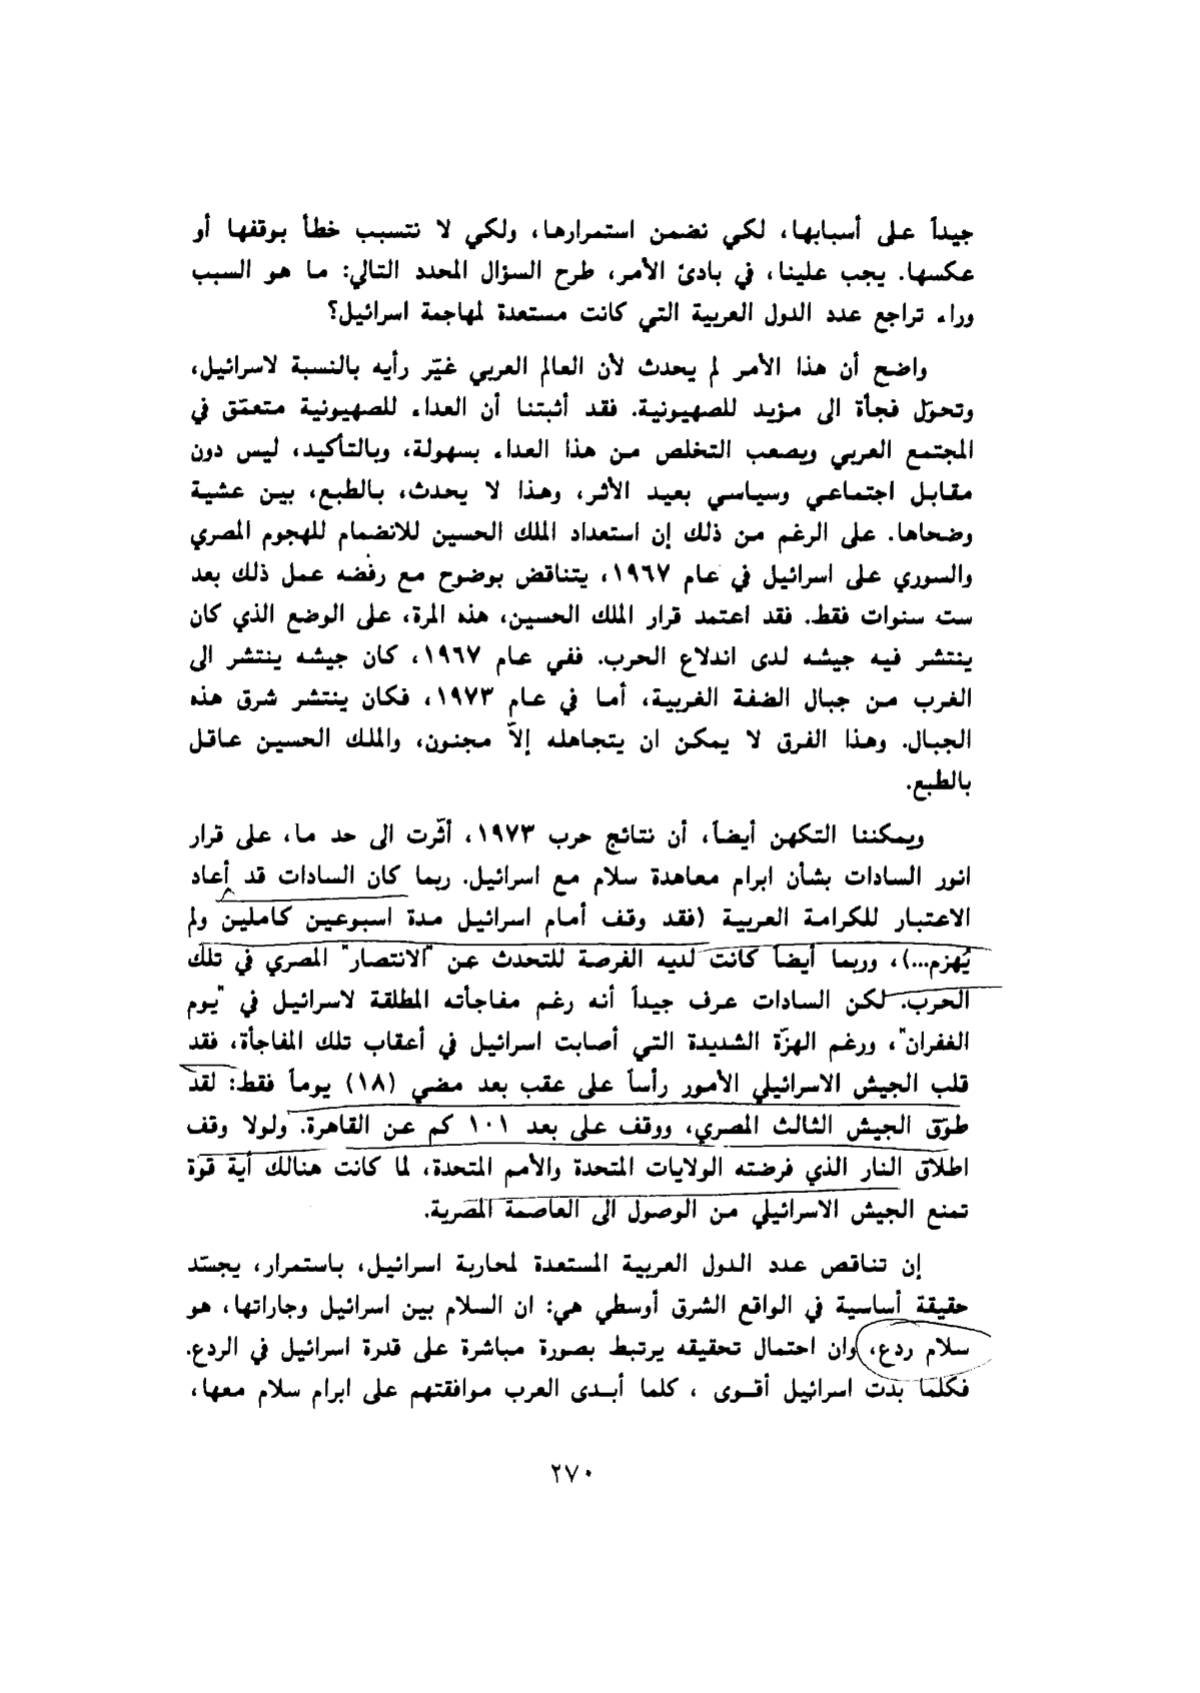 جيداً على أسبابها، لكي نضمن استمرارها، ولكي لا نتسبب خطأ بوقفها أو
عكسها. يجب علينا، في بادئ الأمر، طرح السؤال المحدد التالي: ما هو السبب
وراء تراجع عدد الدول العربية التي كانت مستعدة لمهاجمة اسرائيل؟
واضح أن هذا الأمر لم يحدث لأن العالم العربي غيّر رأيه بالنسبة لاسرائيل،
وتحوّل فجأة الى مؤيد للصهيونية. فقد أثبتنا أن العداء للصهيونية متعمّق في
المجتمع العربي ويصعب التخلص من هذا العداء بسهولة، وبالتأكيد، ليس دون
مقابل اجتماعي وسياسي بعيد الأثر، وهذا لا يحدث، بالطبع، بين عشية
وضحاها. على الرغم من ذلك إن استعداد الملك الحسين للانضمام للهجوم المصري
والسوري على اسرائيل في عام ١٩٦٧، يتناقض بوضوح مع رفضه عمل ذلك بعد
ست سنوات فقط. فقد اعتمد قرار الملك الحسين، هذه المرة، على الوضع الذي كان
ينتشر فيه جيشه لدى اندلاع الحرب. ففي عام ١٩٦٧، كان جيشه ينتشر الى
الغرب من جبال الضفة الغربية، أما في عام ١٩٧٣، فكان ينتشر شرق هذه
الجبال. وهذا الفرق لا يمكن ان يتجاهله إلاّ مجنون، والملك الحسين عاقل
بالطبع.
ويمكننا التكهن أيضاً، أن نتائج حرب ١٩٧٣، أثّرت الى حد ما، على قرار
انور السادات بشأن ابرام معاهدة سلام مع اسرائيل. ربما كان السادات قد أعاد
الاعتبار للكرامة العربية (فقد وقف أمام اسرائيل مدة اسبوعين كاملين ولم
يُهزم...)، وربما أيضاً كانت لديه الفرصة للتحدث عن "الانتصار" المصري في تلك
الحرب. لكن السادات عرف جيداً أنه رغم مفاجأته المطلقة لاسرائيل في "يوم
الغفران"، ورغم الهزّة الشديدة التي أصابت اسرائيل في أعقاب تلك المفاجأة، فقد
قلب الجيش الاسرائيلي الأمور رأساً على عقب بعد مضي (١٨) يوماً فقط: لقد
طوّق الجيش الثالث المصري، ووقف على بعد ١٠١ كم عن القاهرة. ولولا وقف
اطلاق النار الذي فرضته الولايات المتحدة والأمم المتحدة، لما كانت هنالك أية قوة
تمنع الجيش الاسرائيلي من الوصول الى العاصمة المصرية.
إن تناقص عدد الدول العربية المستعدة لمحاربة اسرائيل، باستمرار، يجسّد
حقيقة أساسية في الواقع الشرق أوسطي هي: ان السلام بين اسرائيل وجاراتها، هو
سلام ردع، وان احتمال تحقيقه يرتبط بصورة مباشرة على قدرة اسرائيل في الردع.
فكلما بدت اسرائيل أقوى ، كلما أبدى العرب موافقتهم على ابرام سلام معها،
٢٧٠